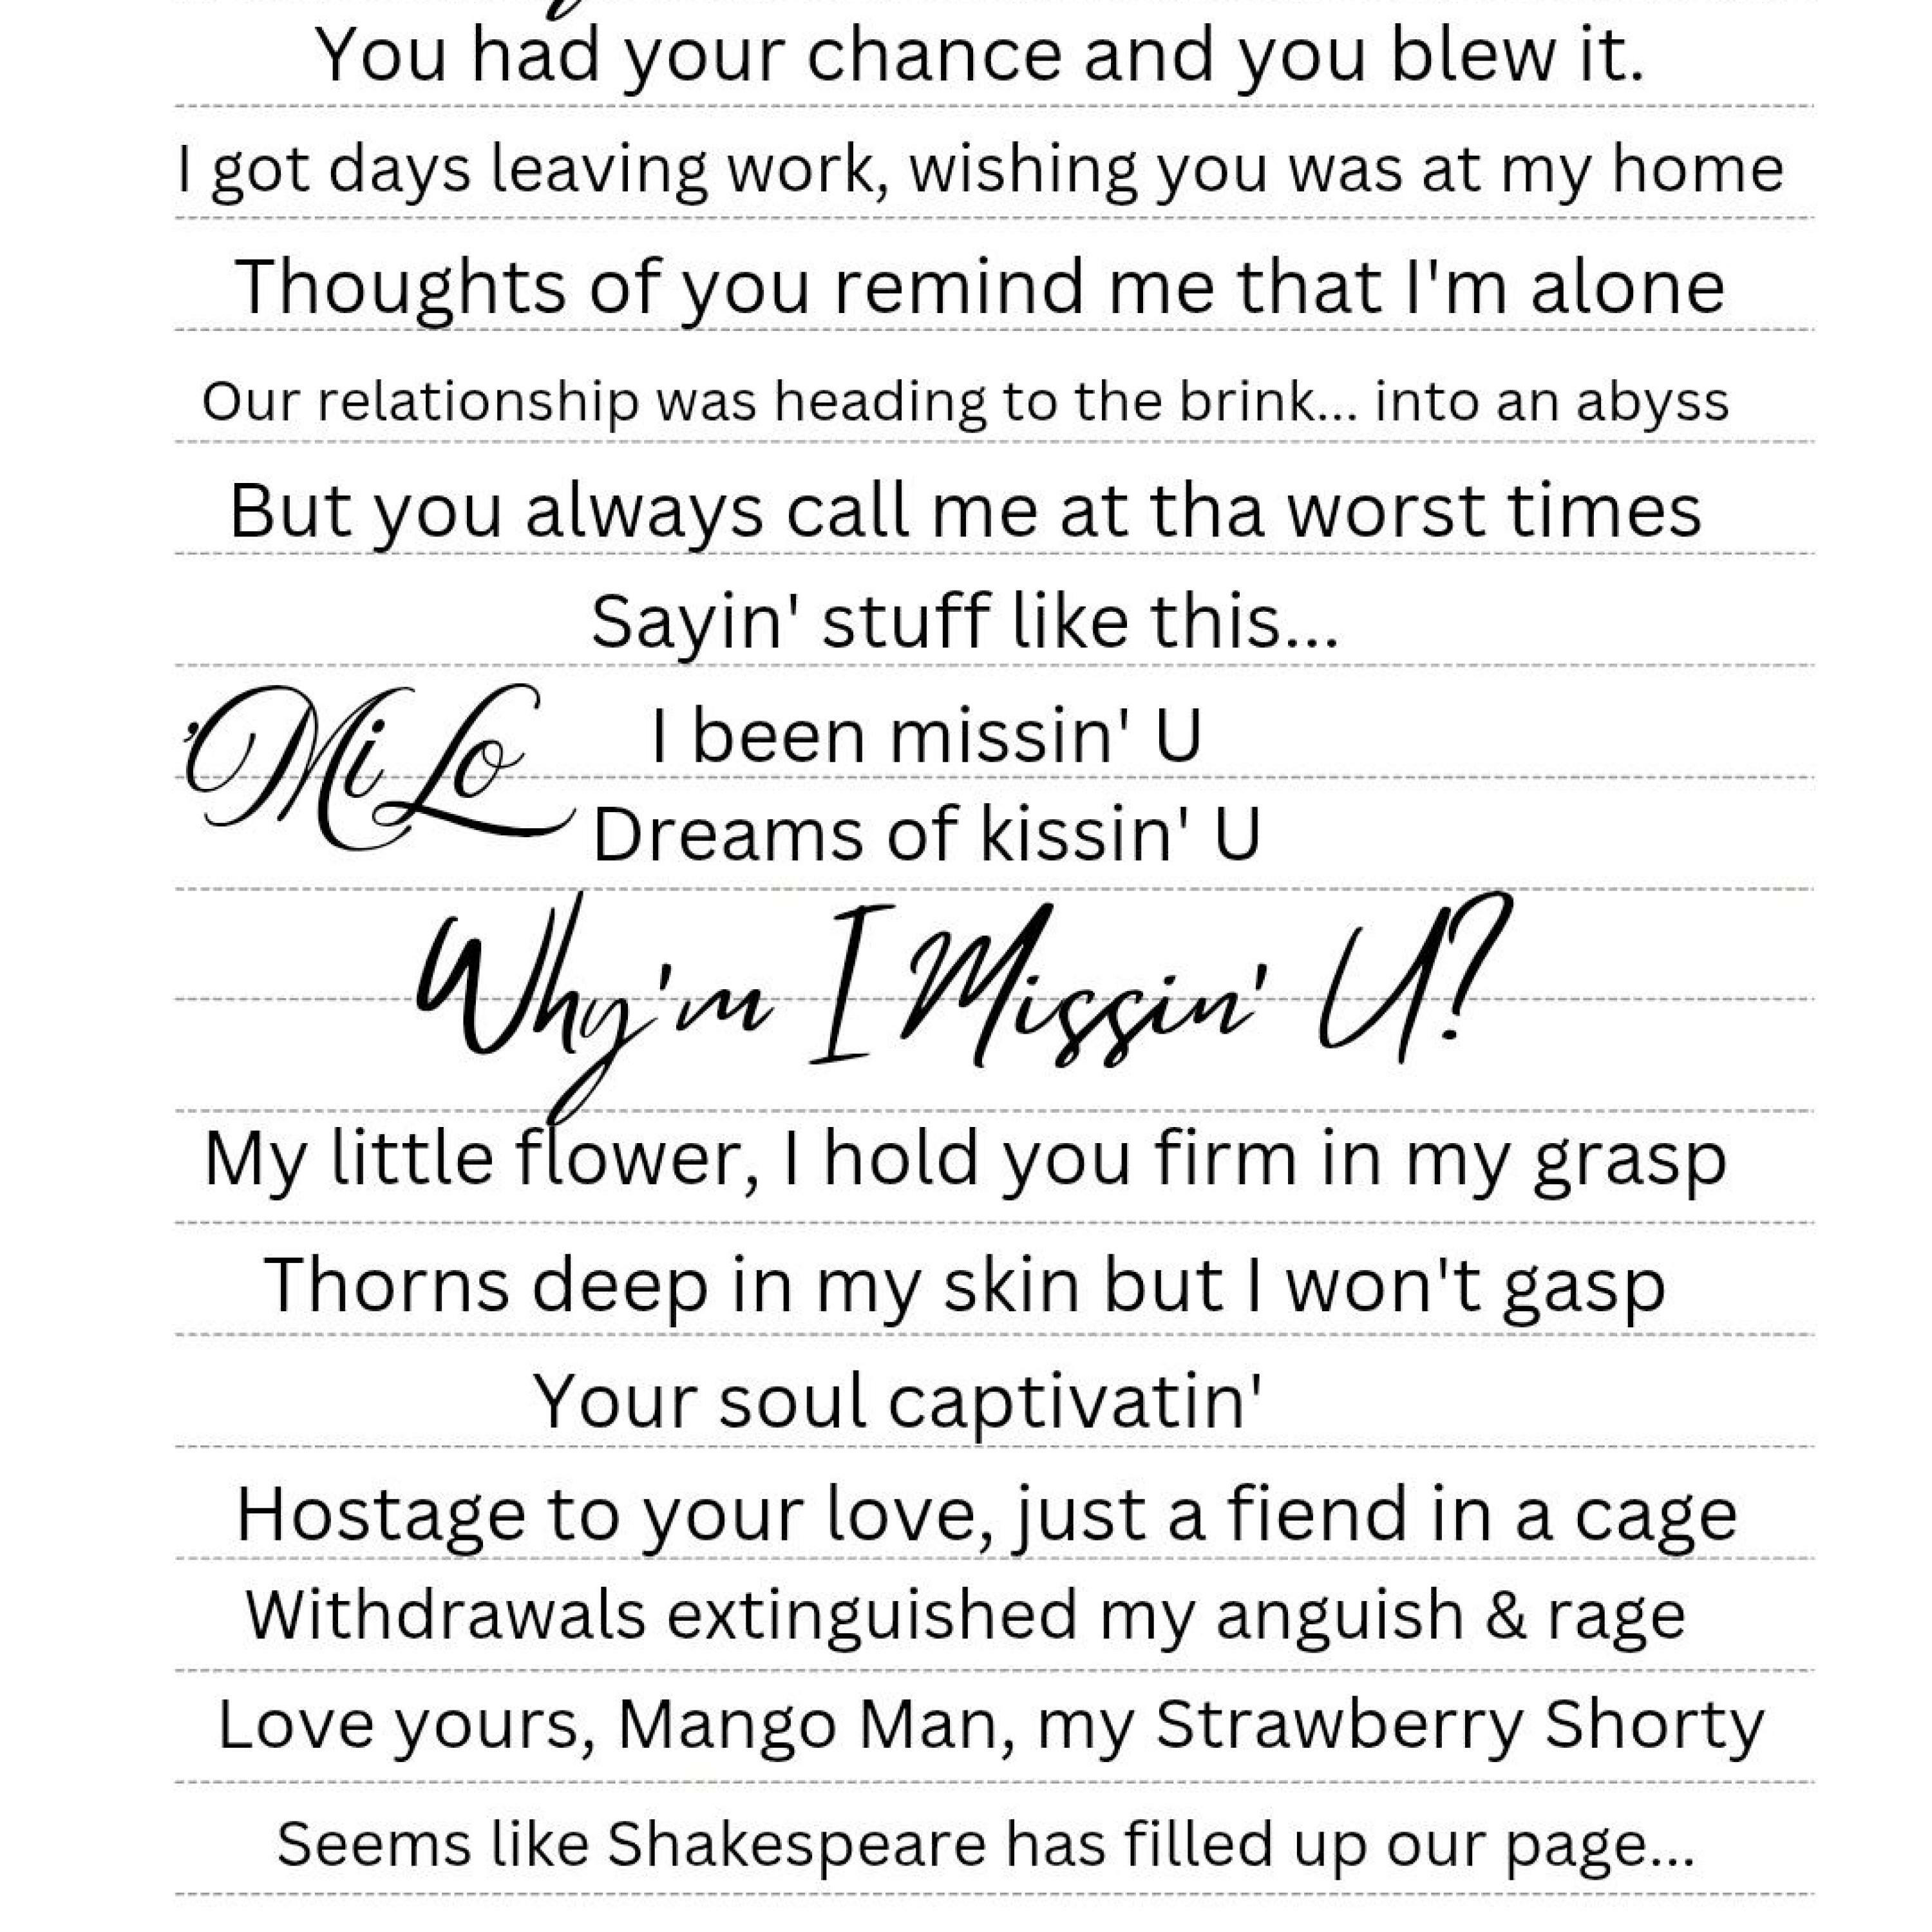 You had your chance and you blew it.
I got days leaving work, wishing you was at my home
Thoughts of you remind me that I'm alone
Our relationship was heading to the brink... into an abyss
But you always call me at tha worst times
Sayin' stuff like this...
'Mi Lo I been missin' U
Dreams of kissin' U
Why'm I Missin' U?
My little flower, I hold you firm in my grasp
Thorns deep in my skin but I won't gasp
Your soul captivatin'
Hostage to your love, just a fiend in a cage
Withdrawals extinguished my anguish & rage
Love yours, Mango Man, my Strawberry Shorty
Seems like Shakespeare has filled up our page...